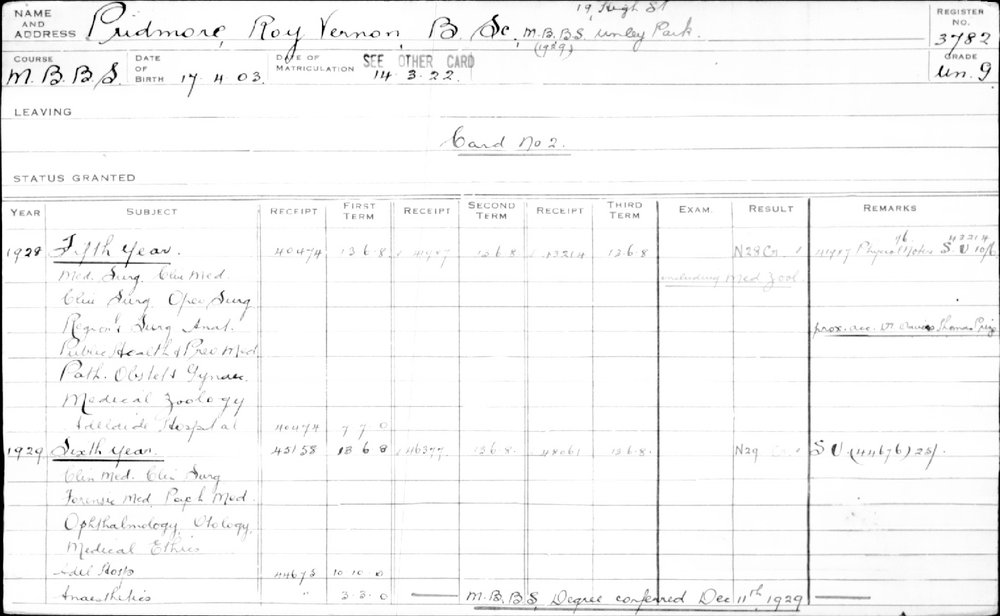 NAME AND ADDRESS Pridmore, Roy Vernon, B. Sc., M.B.B.S. (1929) 19, High St Unley Park. REGISTER NO. 3782
COURSE M.B.B.S. DATE OF BIRTH 17.4.03. DATE OF MATRICULATION SEE OTHER CARD 14.3.22. GRADE Un. 9
LEAVING
Card No 2.
STATUS GRANTED
YEAR SUBJECT RECEIPT FIRST TERM RECEIPT SECOND TERM RECEIPT THIRD TERM EXAM. RESULT REMARKS
1928 Fifth Year. 40474 13 6 8 41987 12 6 8 43214 12 6 8 N28 Cr. 41987 Physics Notes 43214 S.U. 10/6
Med. Surg. Clin Med. including Med Zool
Clin Surg. Oper Surg
Region'l Surg Anat. prox. acc. Dr Davies Thomas Priz
Public Health & Prev Med.
Path. Obstets Gynaec.
Medical Zoology
Adelaide Hospital 40474 7 7 0
1929 Sixth Year. 45158 13 6 8 46377 12 6 8. 48061 12 6 8. N29 Cr. S U (44676) 25/.
Clin Med. Clin Surg
Forensic Med, Psych Med.
Ophthalmology, Otology,
Medical Ethics
Adel Hosp 44675 10 10 0
Anaesthetics " 3 3 0 M.B.B.S. Degree conferred Dec 11th, 1929